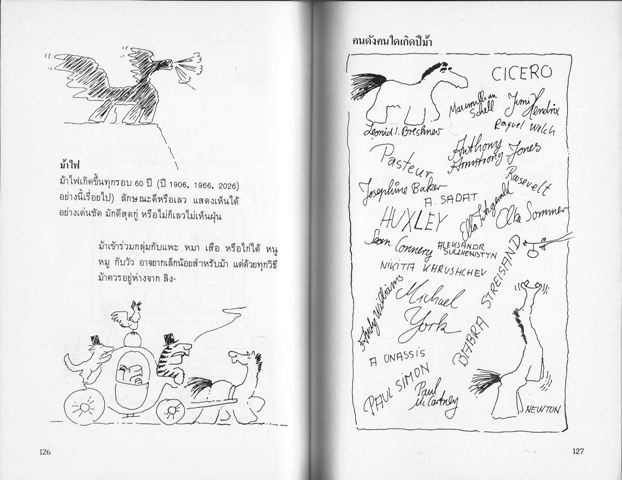 ม้าไฟ
ม้าไฟเกิดขึ้นทุกรอบ 60 ปี (ปี 1906, 1966, 2026)
อย่างนี้เรื่อยไป) ลักษณะดีหรือเลว แสดงเห็นได้
อย่างเด่นชัด มักดีสุดกู่ หรือไม่ก็เลวไม่เห็นฝุ่น
ม้าเข้าร่วมกลุ่มกับแพะ หมา เสือ หรือไก่ได้ หนู
หมู กับวัว อาจยากเล็กน้อยสำหรับม้า แต่ด้วยทุกวิธี
ม้าควรอยู่ห่างจาก ลิง-
126
คนดังคนใดเกิดปีม้า
CICERO
Maximillian
Schell
Jimi Hendrix
Leonid I. Breshnev
Raquel Welch
Pasteur
Anthony
Armstrong Jones
Josephine Baker
Roosevelt
A. SADAT
Ella Fitzgerald
HUXLEY
Elke Sommer
Sean Connery
ALEKSANDR
SOLZHENSTYN
NIKITA KHRUSHCHEV
BARBRA STREISAND
Andy Williams
Michael
York
A ONASSIS
PAUL SIMON
Paul
McCartney
NEWTON
127